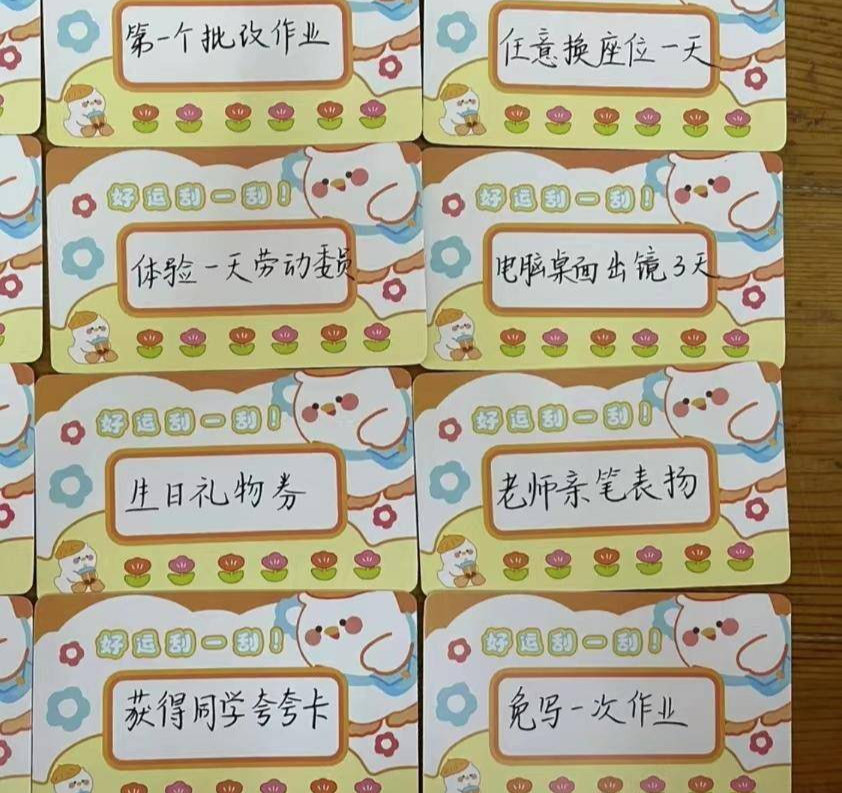 第一个批改作业
任意换座位一天
好运刮一刮！
好运刮一刮！
体验一天劳动委员
电脑桌面出镜3天
好运刮一刮！
好运刮一刮！
生日礼物券
老师亲笔表扬
好运刮一刮！
好运刮一刮！
获得同学夸夸卡
免写一次作业